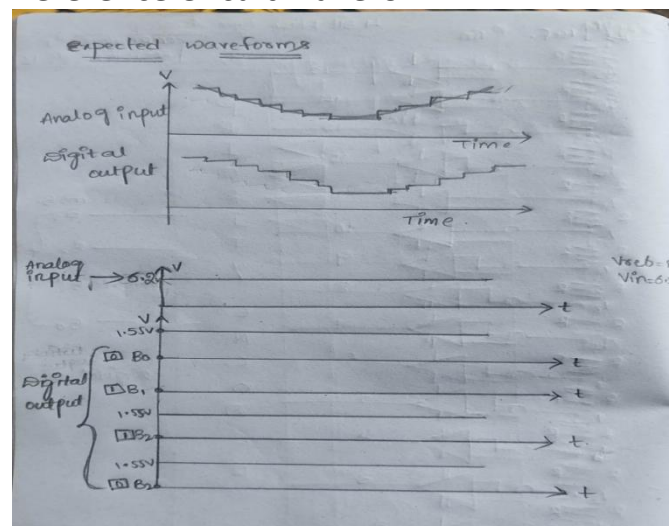 expected waveforms
V
Analog input
Time
Digital output
Time
Analog input → 6.2
V
t
V
1.55V
0 B0
t
Digital output
1 B1
t
1.55V
1 B2
t
1.55V
0 B2
t